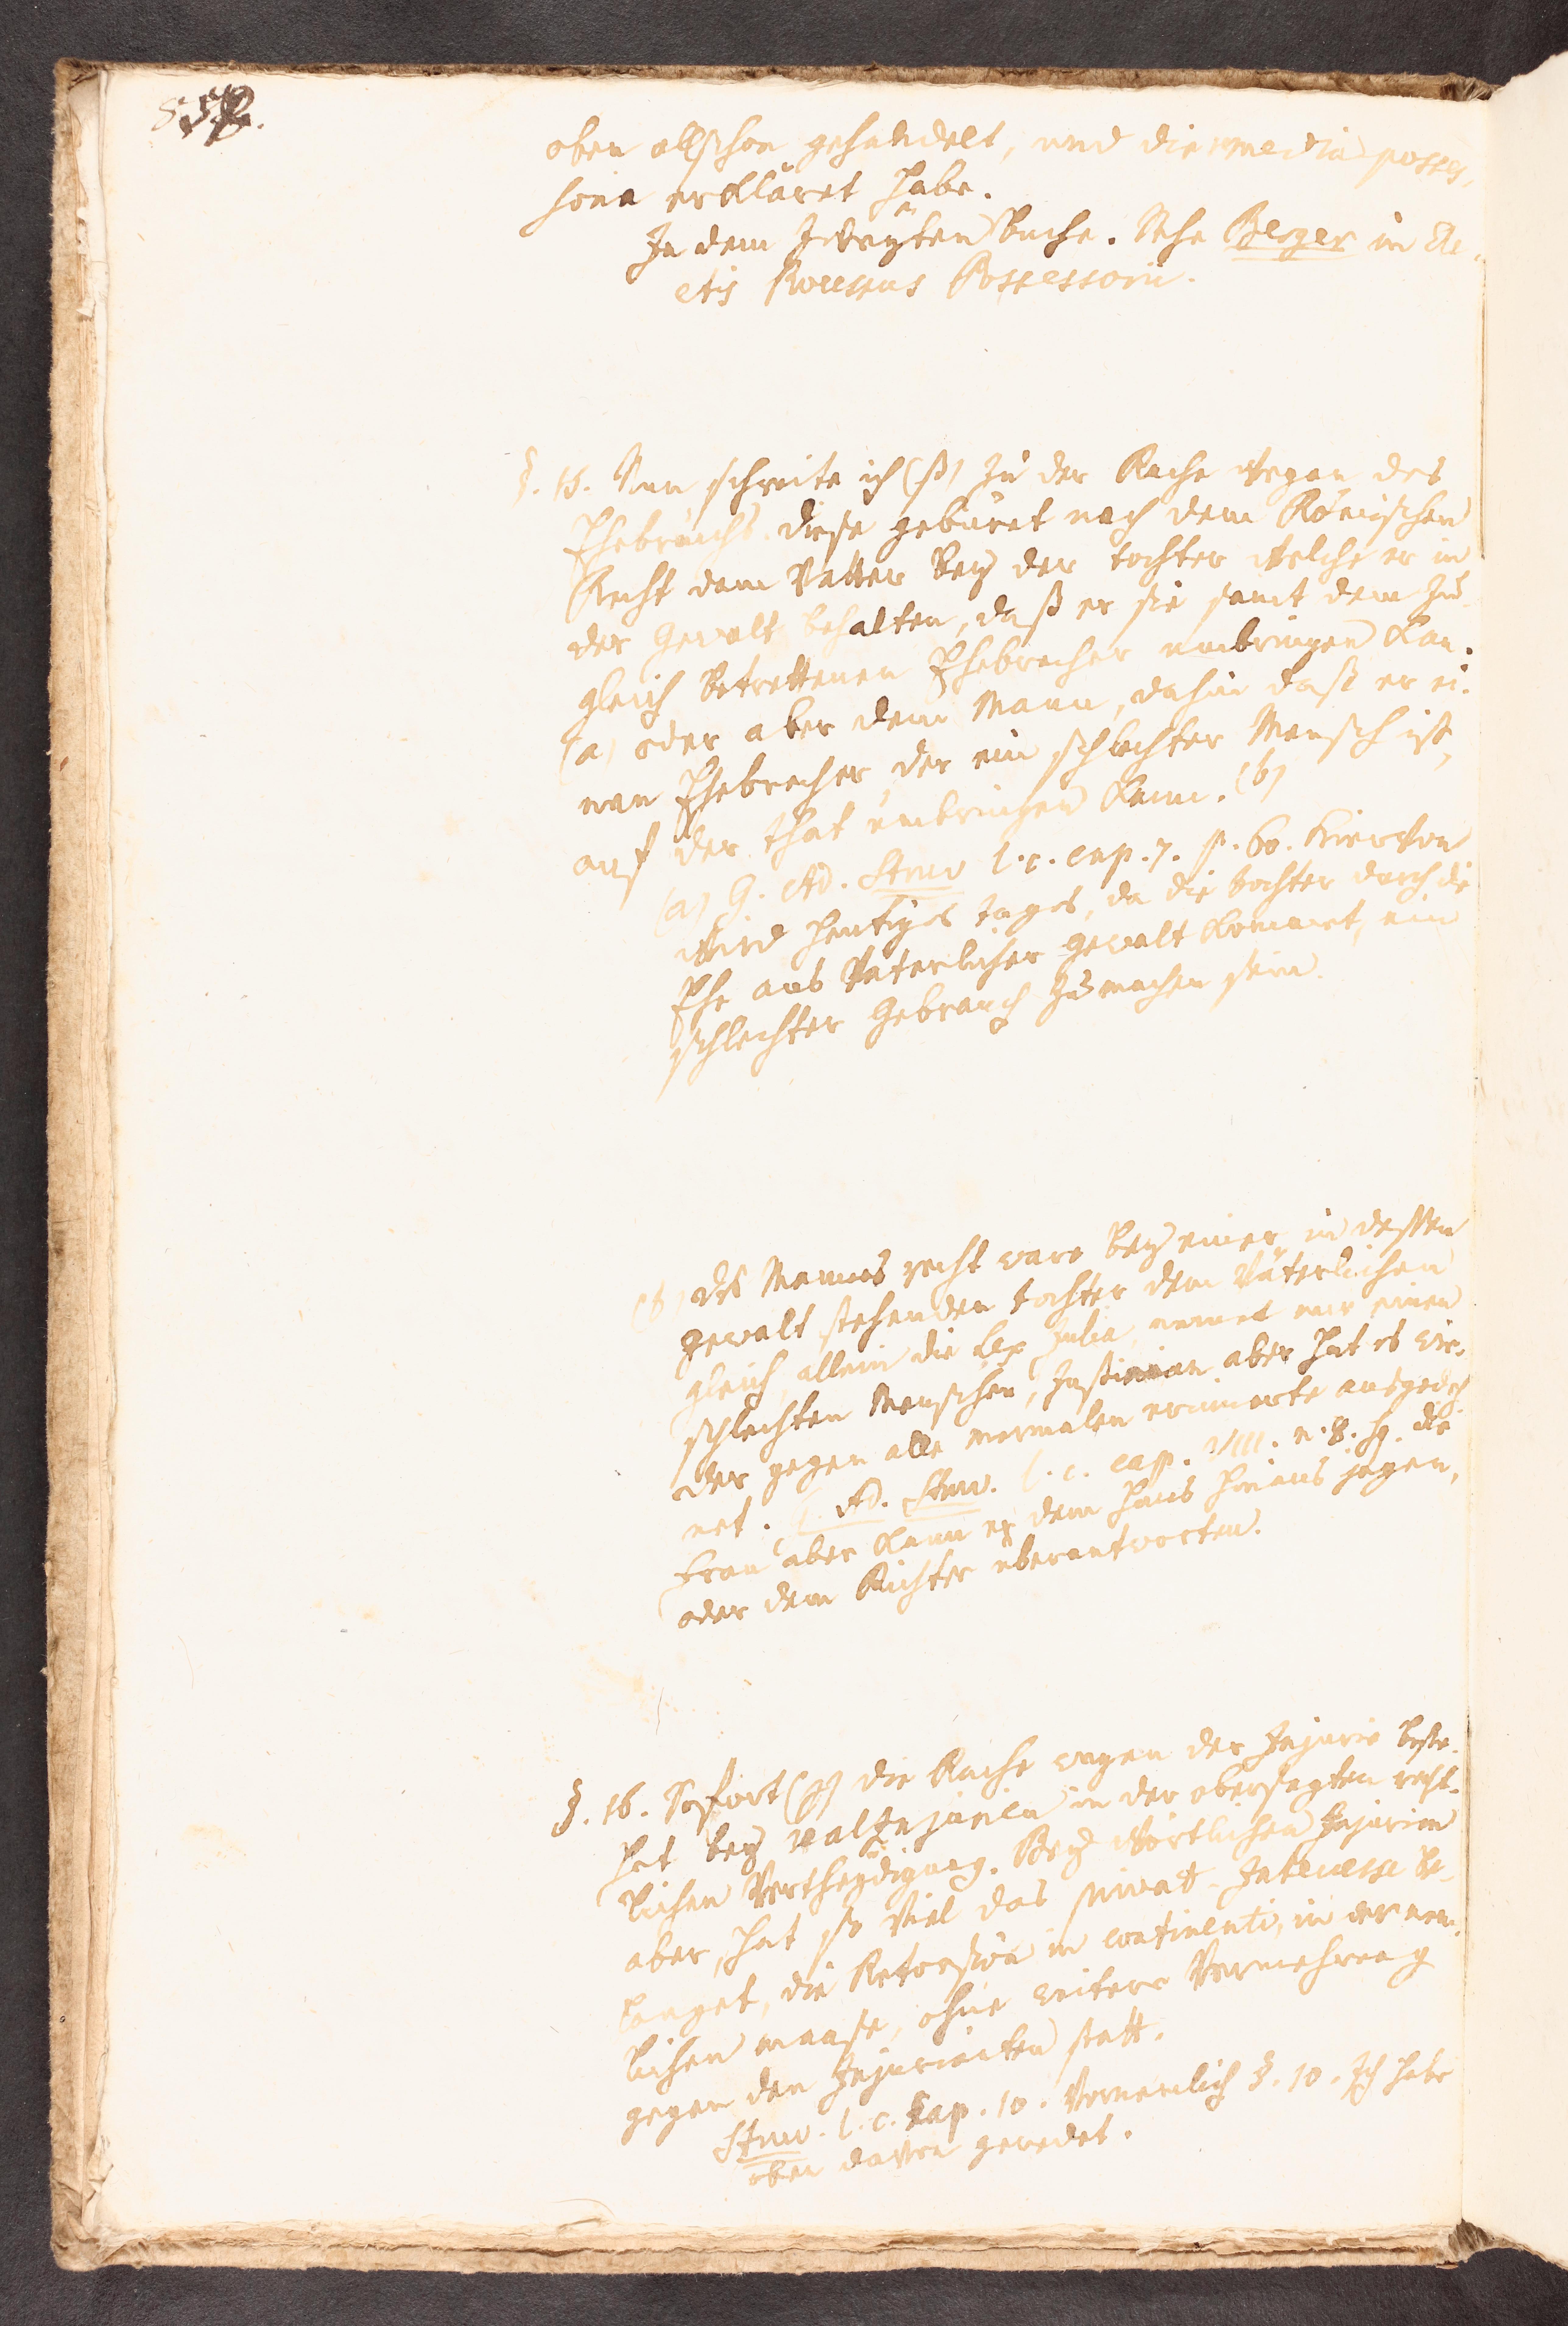 oben allschon gehandelt, und die remedia posses,
soria erkläret habe.
In dem Zweyten Buche. Sehe Berger in Ele,
ctis Processus Possessorii.
§. 15. Nun schreite ich (β) zu der Rache wegen des
Ehebruchs. diese gebüret nach dem Römischen
Recht dem Vatter bey der tochter welche er in
der Gewalt behalten, daß er sie samt dem zu-
gleich betrettenen Ehebrecher umbringen kan.
(a) oder aber dem Mann, dahin daß er ei-
nen Ehebrecher, der ein schlechter Mensch ist,
auf der that umbringen kann. (b)
(a) G. Ad. Struv l. c. cap. 7. p. 60. hiervon
wird heutiges tages, da die tochter durch die
Ehe aus Vaterlicher gewalt kommet, ein
schlechter Gebrauch zu machen sein.
(b) des Mannes recht ware bey einer in dessen
gewalt stehenden tochter dem Väterlichen
gleich, allein die Lex Julia, nennet nur einen
schlechten Menschen, Justinian aber hat es wie-
der gegen alle mermalen erinnerte ausgedeh
net. G. Ad. Struv. l. c. cap. VIII. n. 8. sq. die
Frau aber kann er dem haus hinaus jagen,
oder dem Richter überantworten.
§. 16. Sofort (γ) die Rache wegen der Injurie beste-
het bey realInjurien in der obersagten recht-
lichen Vertheydigung. Bey wörtlichen Injurien
aber, hat so viel das privat-Interesse be-
langet, die Retorsion in continenti, in der nem-
lichen maase, ohne weitere Vermehrung
gegen den Injurianten statt.
Struv. l. c. Cap. 10. Vornemlich §. 10. Ich habe
oben davon geredet.